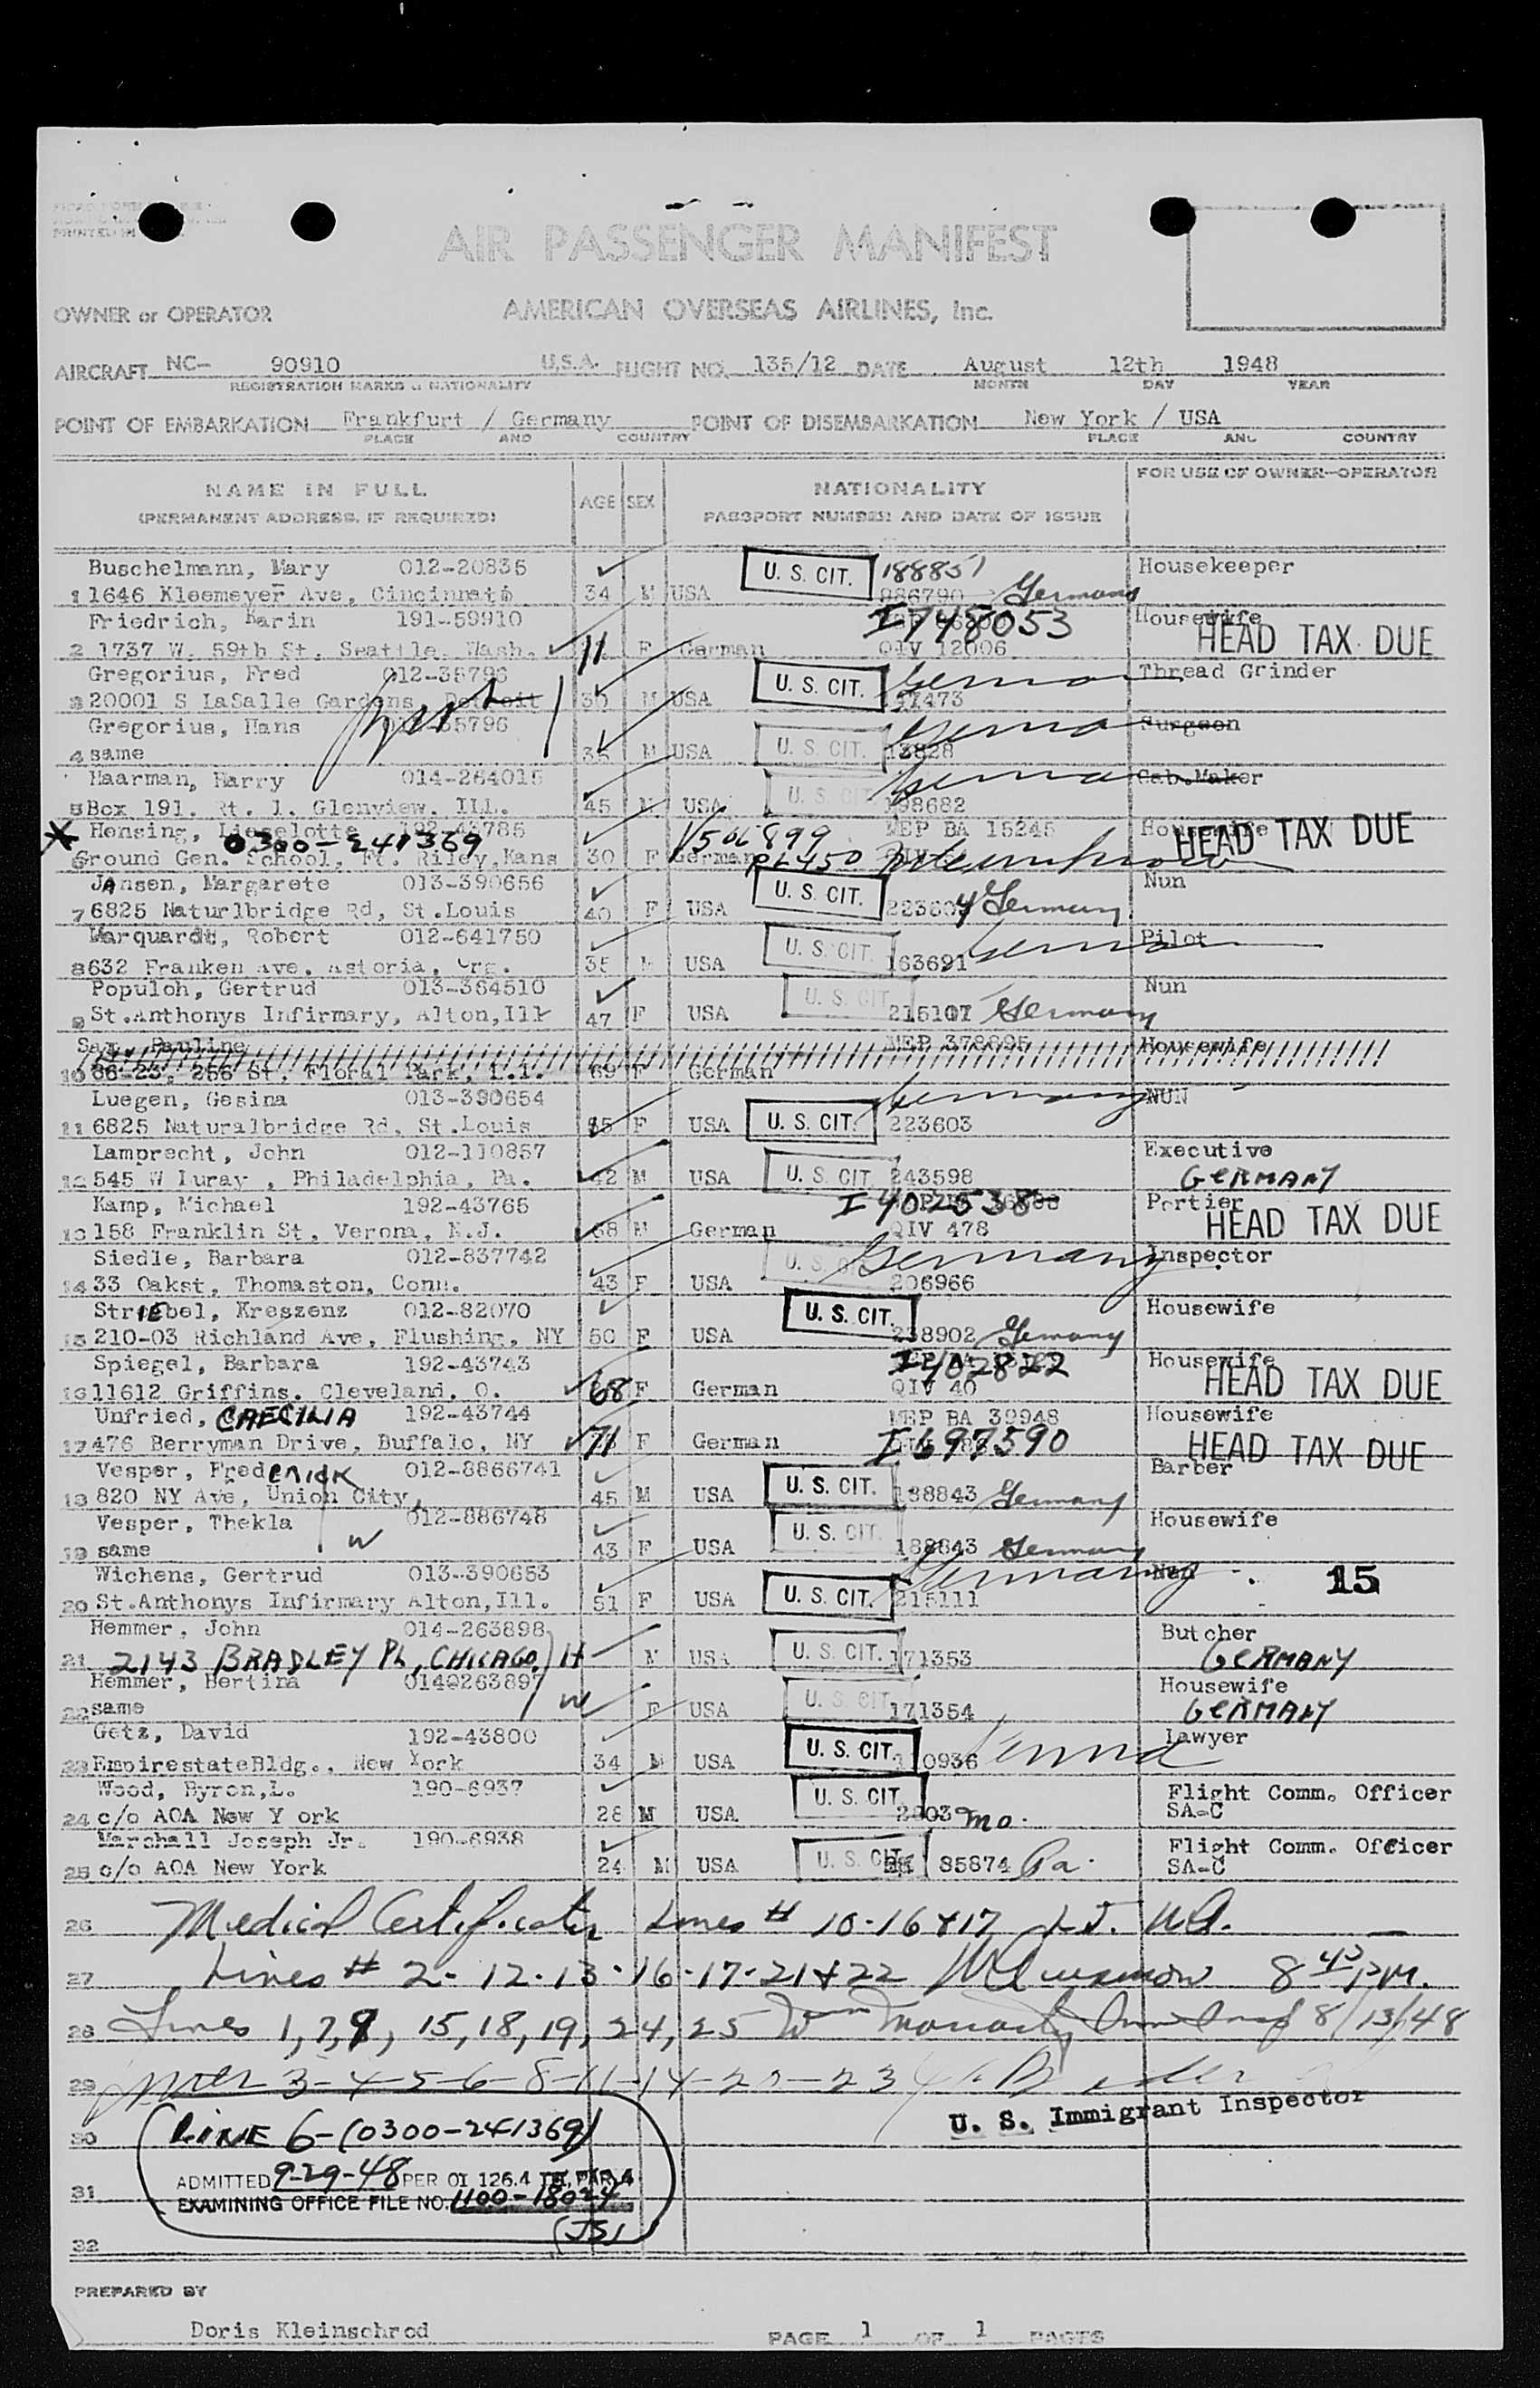 PRINTED IN
AIR PASSENGER MANIFEST
OWNER or OPERATOR AMERICAN OVERSEAS AIRLINES, Inc.
AIRCRAFT NC- 90910 U.S.A. FLIGHT NO. 135/12 DATE August 12th 1948
REGISTRATION MARKS & NATIONALITY MONTH DAY YEAR
POINT OF EMBARKATION Frankfurt / Germany POINT OF DISEMBARKATION New York / USA
PLACE AND COUNTRY PLACE AND COUNTRY
NAME IN FULL AGE SEX NATIONALITY FOR USE OF OWNER-OPERATOR
(PERMANENT ADDRESS, IF REQUIRED) PASSPORT NUMBER AND DATE OF ISSUE
Buschelmann, Mary 012-20835 U. S. CIT. 188851 Housekeeper
1 1646 Kleemeyer Ave, Cincinnati 34 M USA 986790 Germany
Friedrich, Karin 191-59910 I748053 Housewife
2 1737 W. 59th St. Seattle, Wash. 11 F German QIV 12006 HEAD TAX DUE
Gregorius, Fred 012-35796 U. S. CIT. Thread Grinder
3 20001 S LaSalle Gardens, Detroit 30 M USA
Gregorius, Hans 35796 Surgeon
4 same 35 M USA U. S. CIT. 13828
Haarman, Harry 014-264015 Cab.Maker
5 Box 191. Rt. 1. Glenview, Ill. 45 M USA U. S. CIT 198682
Hensing, Lieselotte 192-43785 V506899 MEP BA 15245 Housewife HEAD TAX DUE
0300-241369
6 Ground Gen. School, Ft. Riley, Kans 30 F German PL450
JAnsen, Margarete 013-390656 U. S. CIT. Nun
7 6825 Naturlbridge Rd, St.Louis 40 F USA 22360 4 Germany
Marquardt, Robert 012-641750 U. S. CIT. Pilot
8 632 Franken Ave. Astoria, Org. 35 M USA 163691
Populoh, Gertrud 013-364510 U. S. CIT Nun
9 St.Anthonys Infirmary, Alton,Ill 47 F USA 215107 Germany
Pauline MEP 378895 Housewife
10 86-23, 256 St. Floral Park, L.I. 69 F German
Luegen, Gesina 013-390654 Germany NUN
11 6825 Naturalbridge Rd, St.Louis F USA U. S. CIT. 223603
Lamprecht, John 012-110857 Executive
12 545 W Luray , Philadelphia, Pa. 42 M USA U. S. CIT 243598 GERMANY
Kamp, Michael 192-43765 I402538 Portier
13 158 Franklin St, Verona, N.J. 68 M German QIV 478 HEAD TAX DUE
Siedle, Barbara 012-837742 Germany Inspector
14 33 Oakst, Thomaston, Conn. 43 F USA 206966
StrIEbel, Kreszenz 012-82070 U. S. CIT. Housewife
15 210-03 Richland Ave, Flushing, NY 50 F USA 238902 Germany
Spiegel, Barbara 192-43743 I402822 Housewife
16 11612 Griffins. Cleveland. O. 68 F German QIV 40 HEAD TAX DUE
Unfried, CAECILIA 192-43744 MEP BA 39948 Housewife
17 476 Berryman Drive, Buffalo, NY 71 F German I697590 HEAD TAX DUE
Vesper, FredERICK 012-8866741 U. S. CIT. Barber
18 820 NY Ave, Union City, 45 M USA 188843 Germany
Vesper, Thekla 012-886748 U. S. CIT. Housewife
19 same W 43 F USA 188843 Germany
Wichens, Gertrud 013-390653 Germany 15
20 St.Anthonys Infirmary Alton,Ill. 51 F USA U. S. CIT. 215111
Hemmer, John 014-263898 Butcher
21 2143 BRADLEY PL, CHICAGO. H M USA U. S. CIT. 171353 GERMANY
Hemmer, Bertina 0140263897 Housewife
22 same W F USA U. S. CIT 171354 GERMANY
Getz, David 192-43800 U. S. CIT. Lawyer
23 EmpirestateBldg., New York 34 M USA 0936
Wood, Byron,L. 190-6937 U. S. CIT. Flight Comm. Officer
24 c/o AOA New Y ork 28 M USA Mo. SA-C
Marshall Joseph Jr. 190-6938 Flight Comm. Officer
25 c/o AOA New York 24 M USA U. S. CIT. 85874 Pa. SA-C
26 Medical Certificates Lines # 10-16+17
27 Lines # 2-12-13-16-17-21+22 8 45 P.M.
28 Lines 1,7,9, 15,18,19, 24,25 8/13/48
29 3-4-5-6-8-11-14-20-23
U. S. Immigrant Inspector
30 LINE 6-(0300-241369)
31 ADMITTED 9-29-48 PER OI 126.4
EXAMINING OFFICE FILE NO. 1100-18024
32 (JS)
PREPARED BY
Doris Kleinschrod PAGE 1 OF 1 PAGES